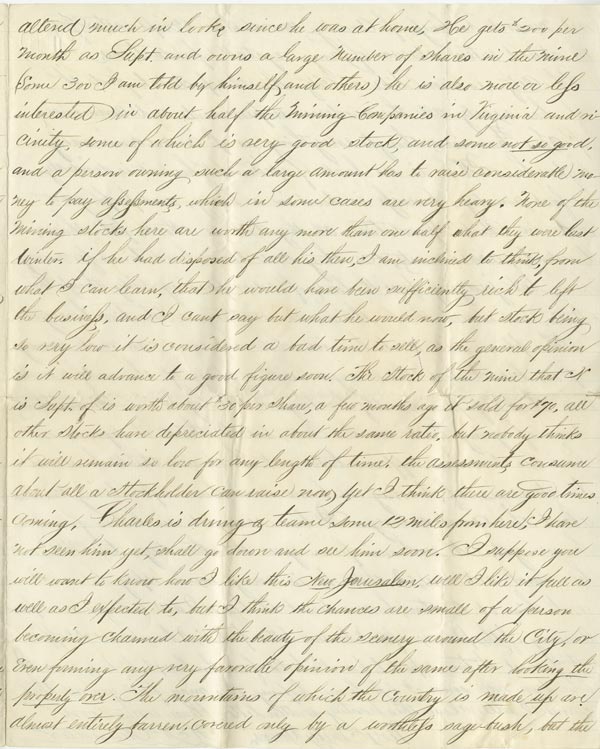 altend much in looks since he was at home, He gets $200 per
month as Supt. and owns a large number of shares in the mine
(some 300 I am told by himself and others) he is also more or less
interested in about half the mining Companies in Virginia and vi
cinity, some of which is very good stock, and some not so good,
and a person owning such a large amount has to raise considerable mo
ney to pay assessments, which in some cases are very heavy. None of the
mining stocks here are worth any more than one half what they were last
winter. if he had disposed of all his then, I am inclined to think, from
what I can learn, that he would have been sufficiently rich to left
the business, and I cant say but what he would now, but stock being
so very low it is considered a bad time to sell, as the general opinion
is it will advance to a good figure soon. The Stock of the mine that N
is Supt. of is worth about $30 per share, a few months ago it sold for $70, all
other stocks have depreciated in about the same ratio, but nobody thinks
it will remain so low for any length of time, the assessments consume
about all a Stockholder can raise now, yet I think there are good times
coming. Charles is driving a team some 12 miles from here, I have
not seen him yet, shall go down and see him soon. I suppose you
will want to know how I like this New Jerusalem, well I like it full as
well as I expected to, but I think the chances are small of a person
becoming charmed with the beauty of the scenery around the City, or
even forming any very favorable opinion of the same after looking the
property over. The mountains of which the Country is made up are
almost entirely barren, covered only by a worthless sage-bush, but the